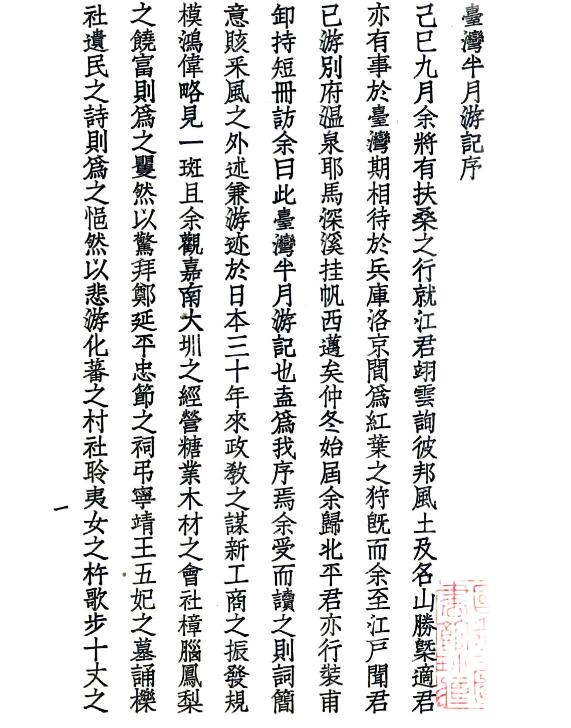 臺灣半月游記序
己巳九月余將有扶桑之行就江君翊雲詢彼邦風土及名山勝槩適君
亦有事於臺灣期相待於兵庫洛京間爲紅葉之狩既而余至江戶聞君
已游別府溫泉耶馬深溪挂帆西邁矣仲冬始屆余歸北平君亦行裝甫
卸持短冊訪余曰此臺灣半月游記也盍爲我序焉余受而讀之則詞簡
意賅采風之外述兼游迹於日本三十年來政敎之謀新工商之振發規
模鴻偉略見一斑且余觀嘉南大圳之經營糖業木材之會社樟腦鳳梨
之饒富則爲之矍然以驚拜鄭延平忠節之祠弔寧靖王五妃之墓誦櫟
社遺民之詩則爲之悒然以悲游化蕃之村社聆夷女之杵歌步十丈之
一